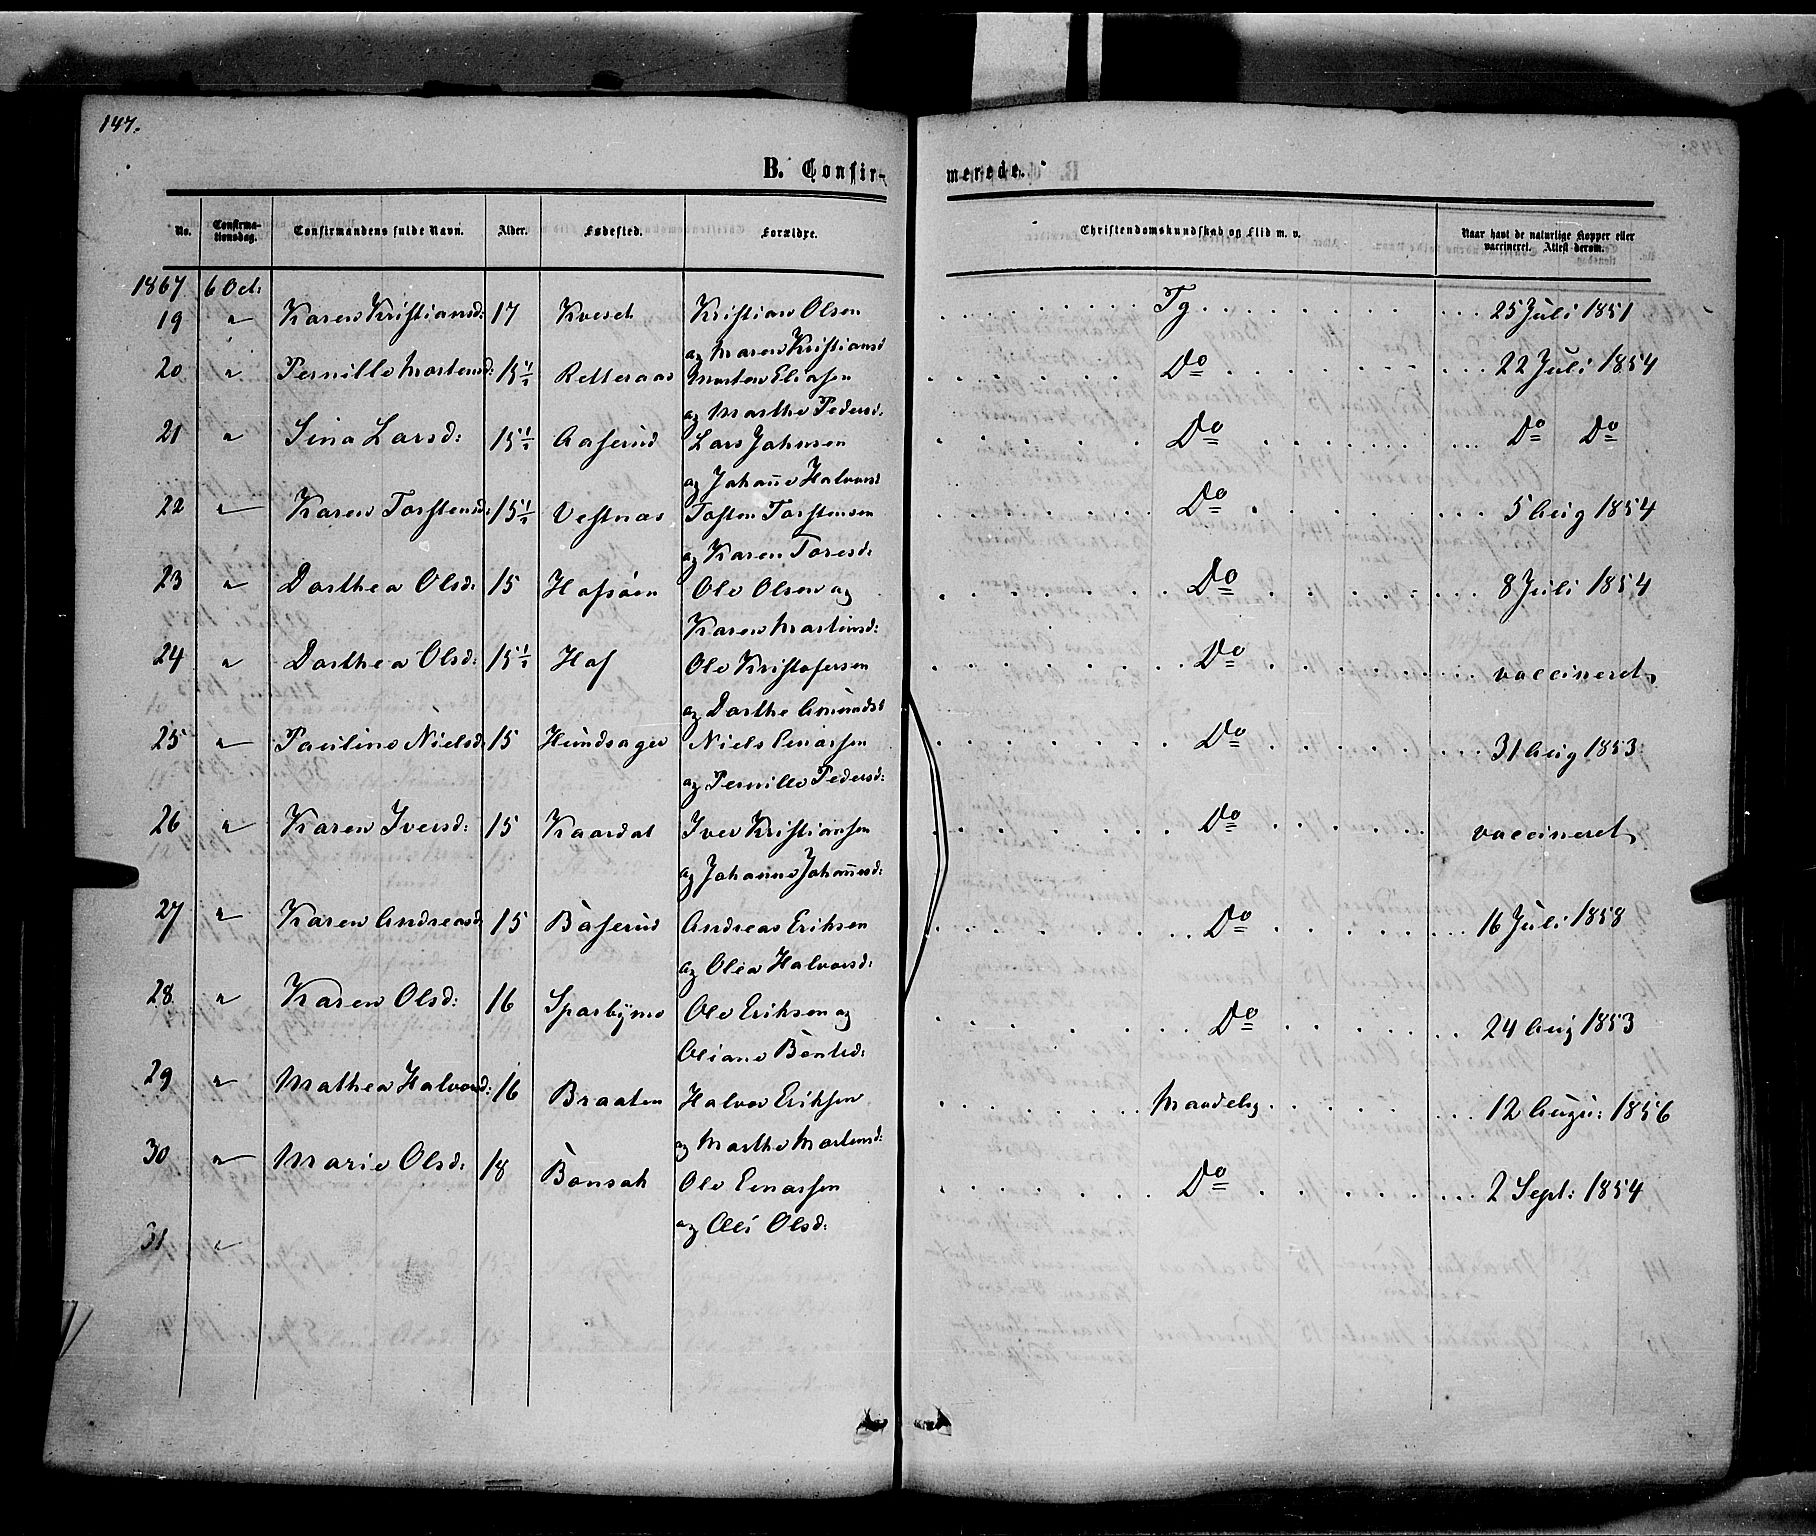 147.
B. Confir- merede.
No. Confirma-tionsdag. Confirmandens fulde Navn. Alder. Fødested. Forældre. Christendomskundskab og Flid m. v. Naar havt de naturlige Kopper eller vaccineret. Attest derom.
1867 6 Oct:
19 " Karen Kristiansd: 17 Kveset Kristian Olsen Tg 25 Juli 1851
og Maren Kristiansd
20 " Pernille Mortensd: 15½ Retteraas Morten Eliasen Do 22 Juli 1854
og Marthe Pedersd:
21 " Sina Larsd: 15½ Aaserud Lars Johnsen Do Do Do
og Johanne Halvorsd
22 " Karen Torstensd: 15½ Vestnas Tosten Torstensen Do 5 Aug 1854
og Karen Toresd:
23 " Dorthea Olsd: 15 Hofsøen Ole Olsen og Do 8 Juli 1854
Karen Martinsd:
24 " Dorthea Olsd: 15½ Hof Ole Kristofersen Do vaccineret
og Dorthe Amundsd
25 " Pauline Nielsd: 15 Hundsager Niels Einarsen Do 31 Aug 1853
og Pernille Pedersd:
26 " Karen Iversd: 15 Kaardal Iver Kristiansen Do vaccineret
og Johanne Johannesd:
27 " Karen Andreasd: 15 Baserud Andreas Eriksen Do 16 Juli 1858
og Olea Halvorsd:
28 " Karen Olsd: 16 Sparbyms Ole Eriksen og Do 24 Aug 1853
Oliane Bentsd:
29 " Mathea Halvorsd: 16 Braaten Halvor Eriksen Maadelig 12 Augu: 1856
og Marthe Martinsd:
30 " Marie Olsd: 18 Bonsak Ole Einarsen Do 2 Sept: 1854
og Oli Olsd:
31 "